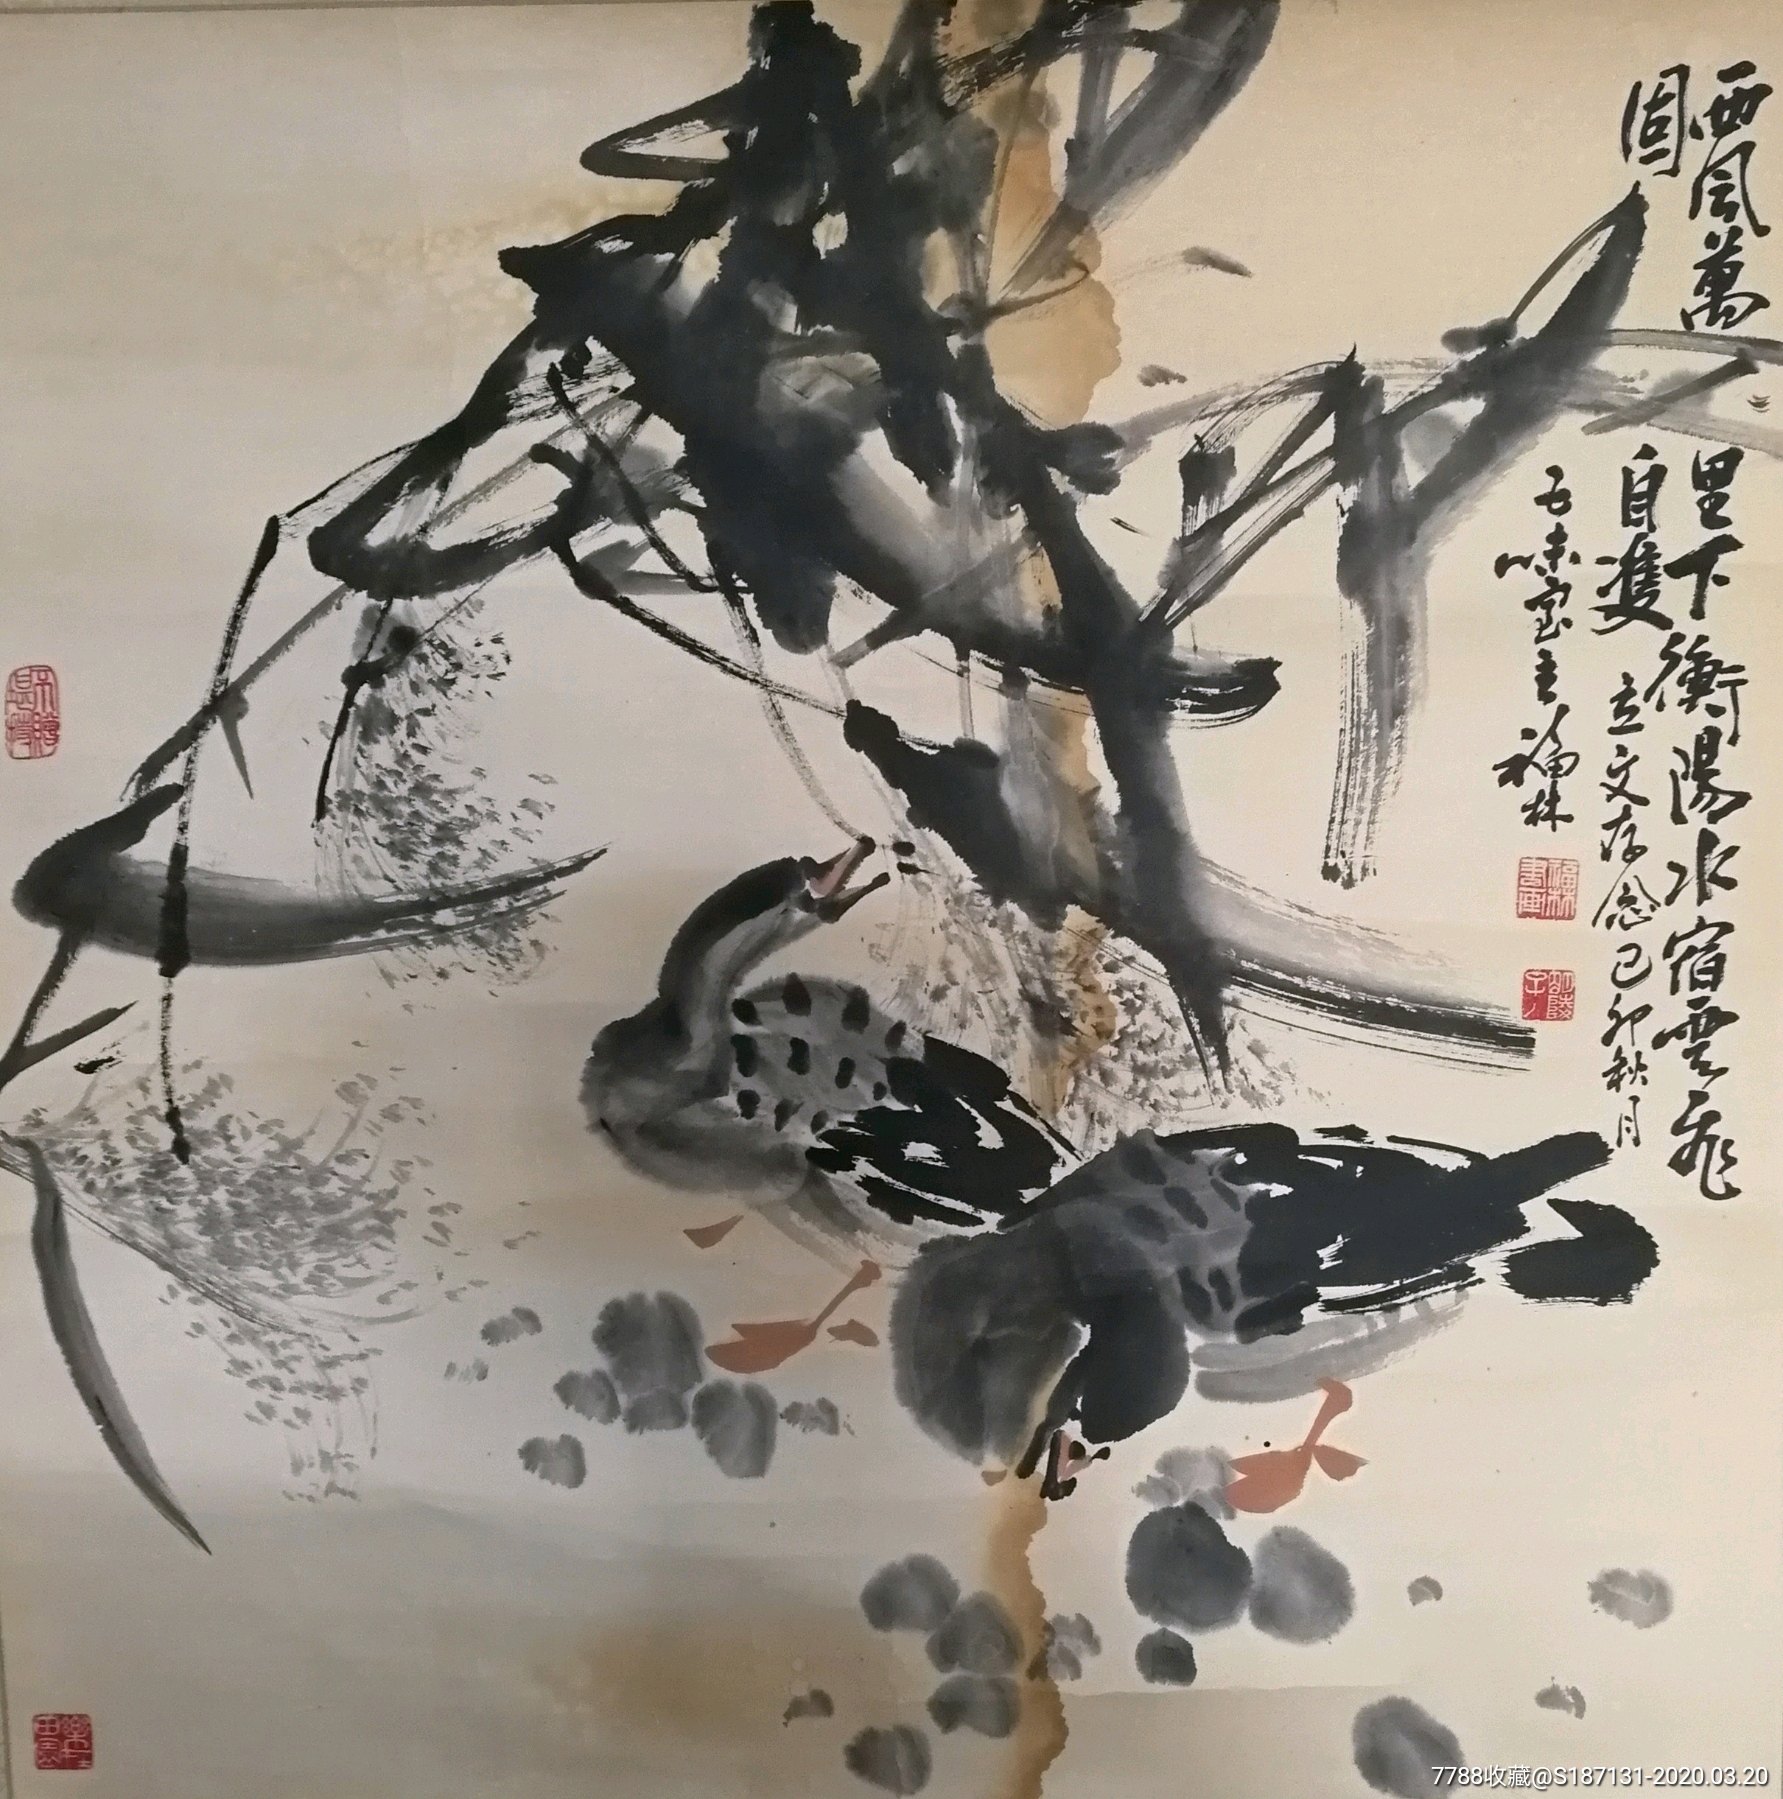 西風萬里下衡陽水宿雲飛
固自雙 立文存念己卯秋月
五味室主福林
福林書画
7788收藏@S187131-2020.03.20